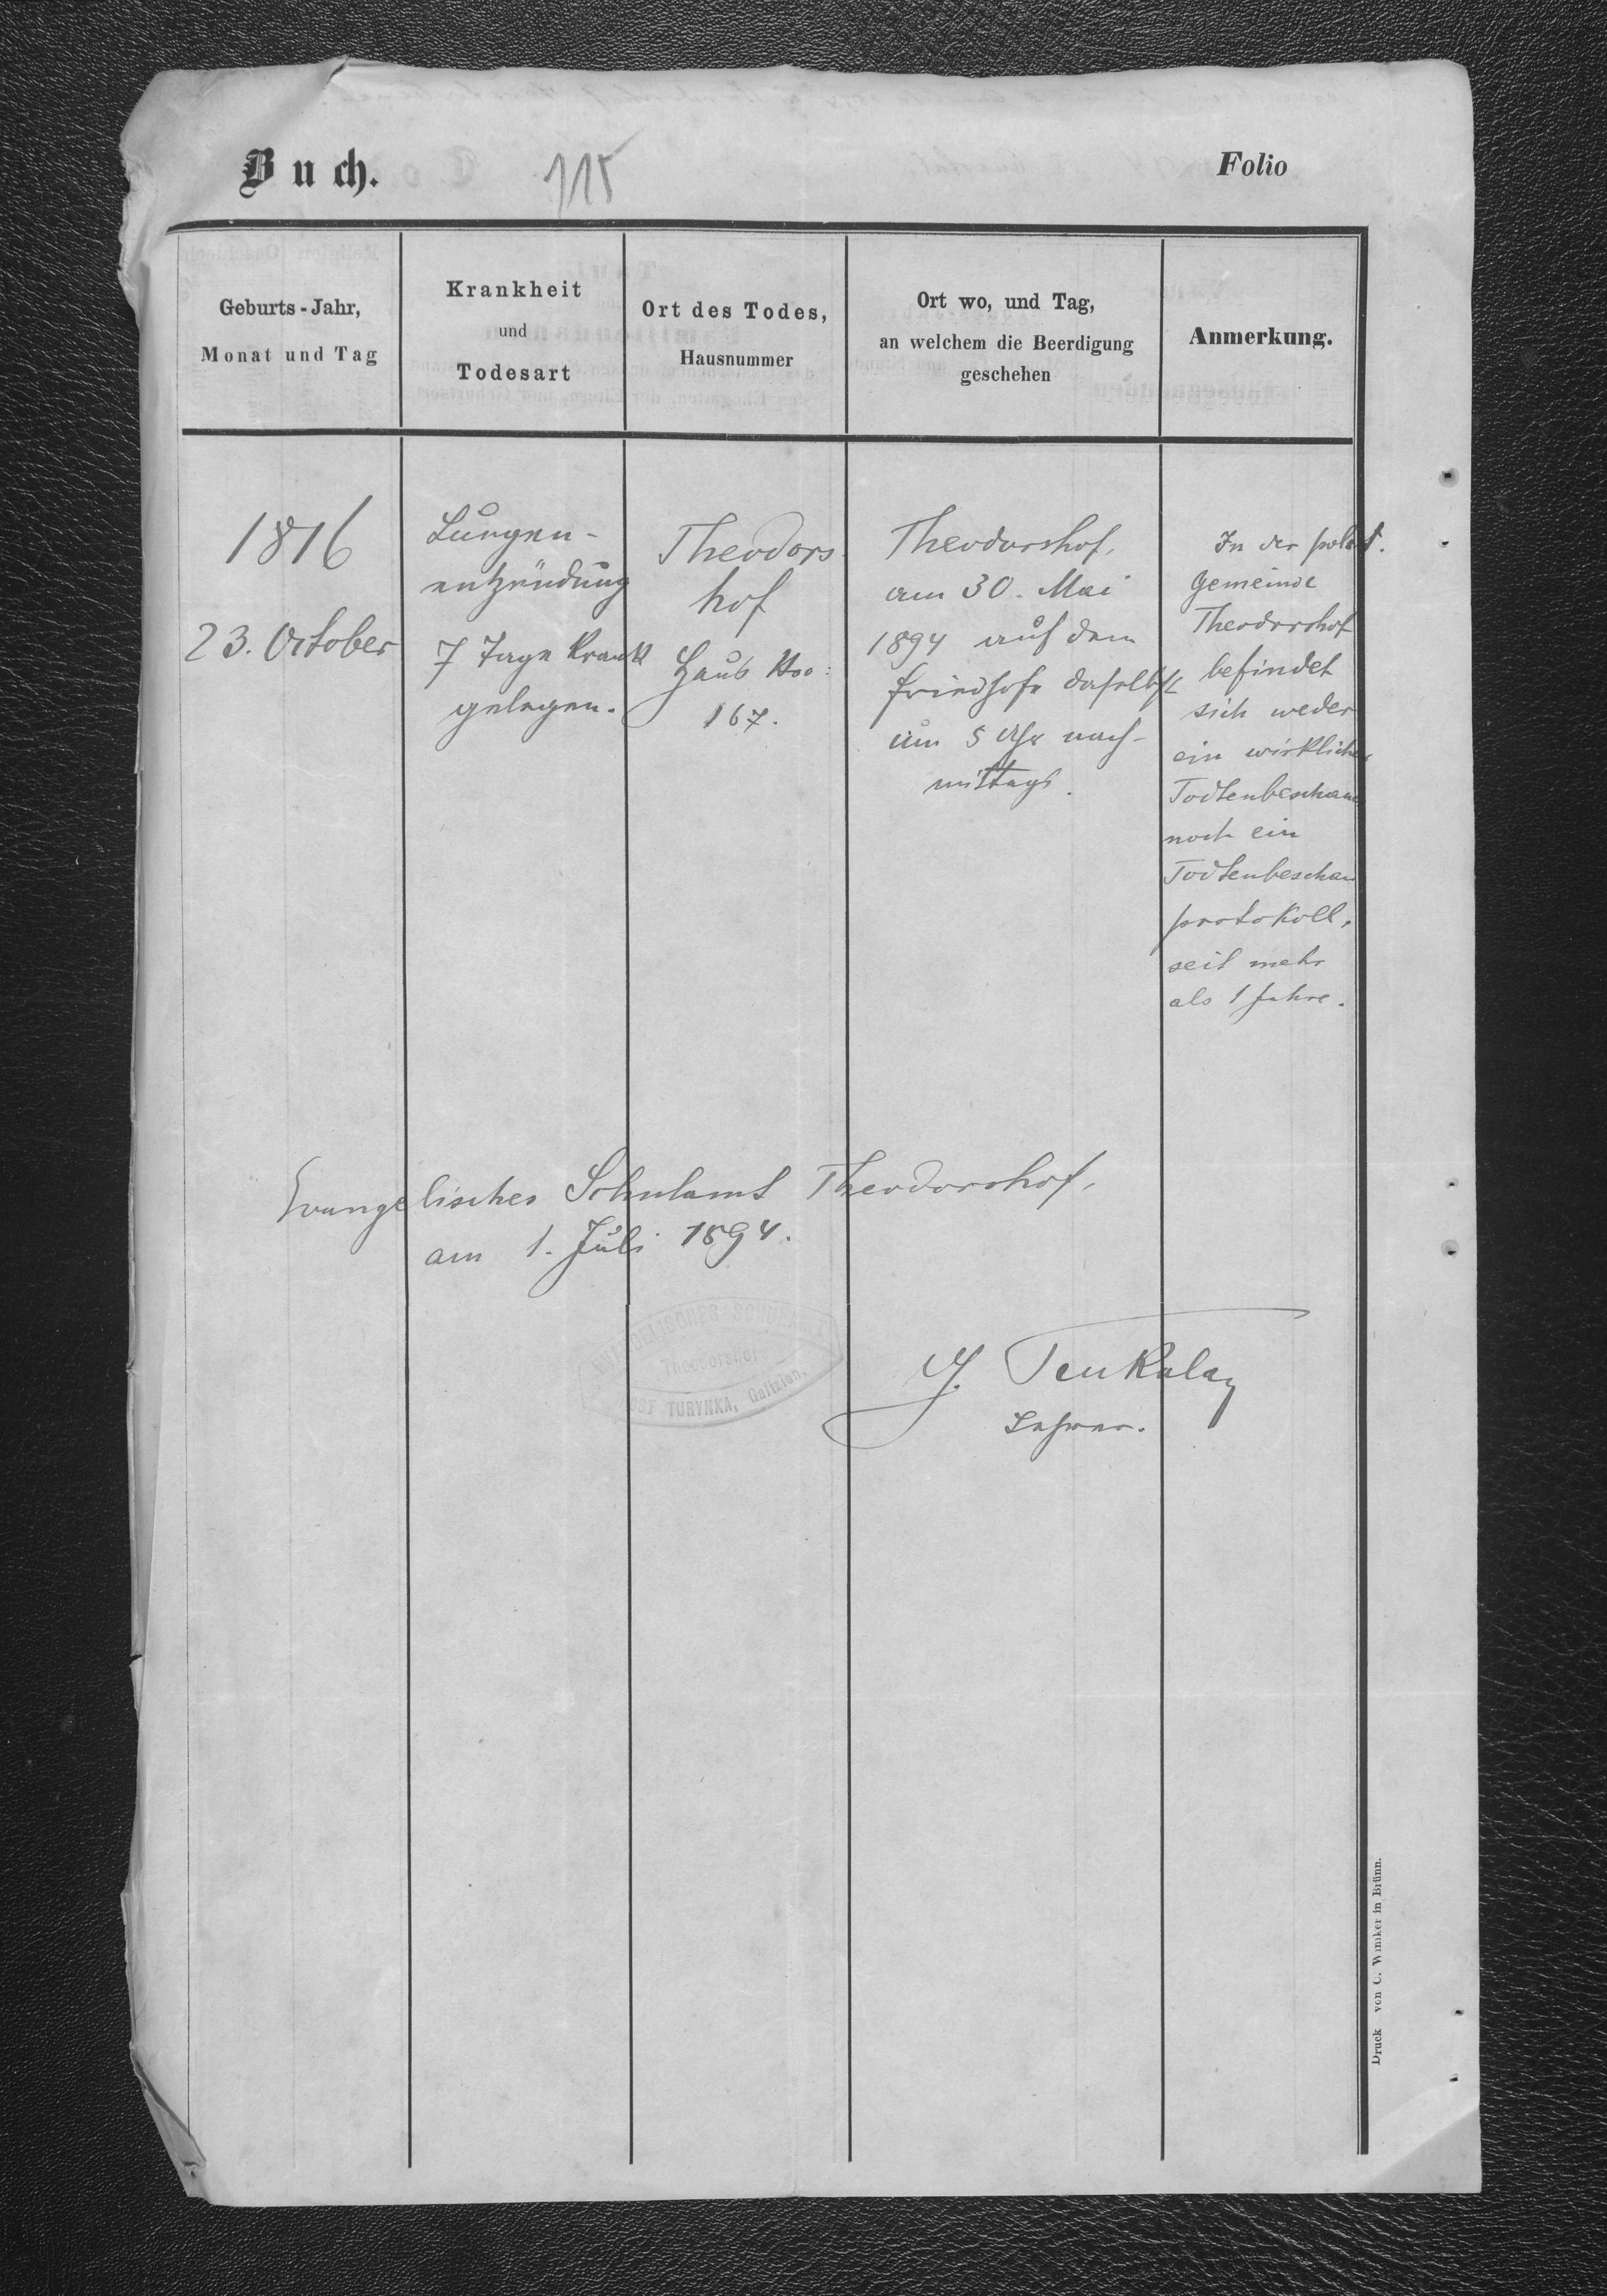 Buch.
115
Folio
Geburts-Jahr,
Monat und Tag
Krankheit
und
Todesart
Ort des Todes,
Hausnummer
Ort wo, und Tag,
an welchem die Beerdigung
geschehen
Anmerkung.
1816
23. October
Lungen-
entzündung
7 Tage krank
gelegen.
Theodors
hof
Haus Nro:
167.
Theodorshof,
am 30. Mai
1894 auf dem
Friedhofe daselbst
um 5 Uhr nach-
mittags.
In der polit.
Gemeinde
Theodorshof
befindet
sich weder
ein wirklicher
Todtenbeschauer
noch ein
Todtenbeschau
protokoll,
seit mehr
als 1 Jahre.
Evangelisches Schulamt Theodorshof,
am 1. Juli 1894.
EVANGELISCHES SCHULAMT
Theodorshof
POST TURYNKA, Galizien.
J. Tenkalay
Lehrer.
Druck von C. Winiker in Brünn.